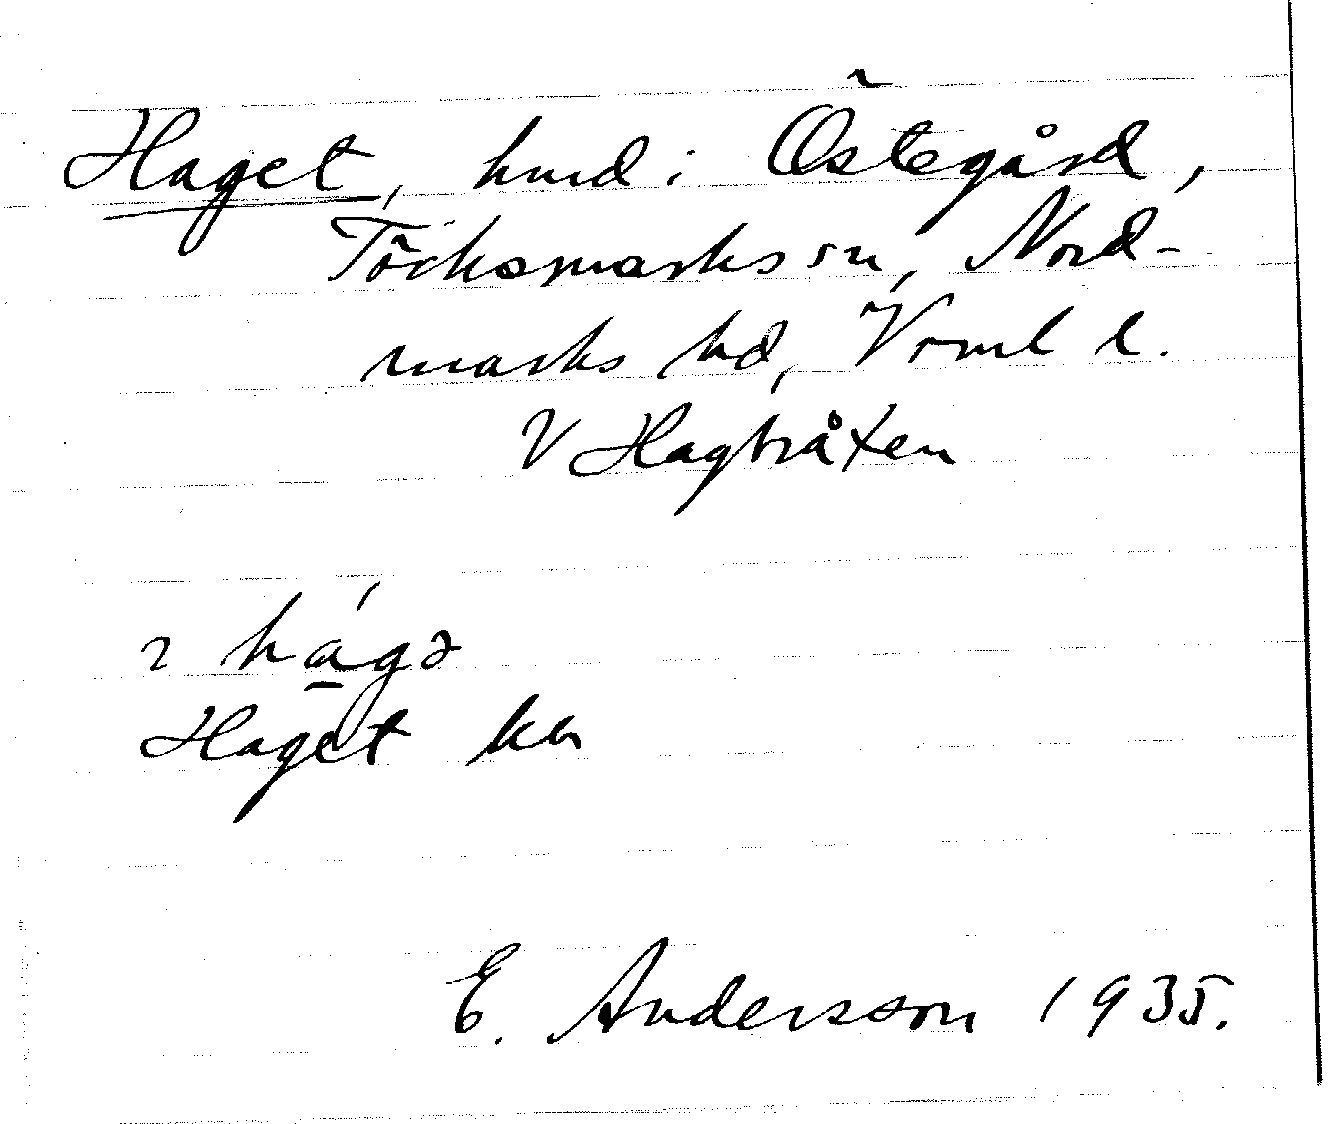 Haget, hmd i Östegård,
Töcksmarks sn, Nord-
marks hd, Vrml l.
V Hagtråten
2 hágə
Haget
E. Andersson 1935.